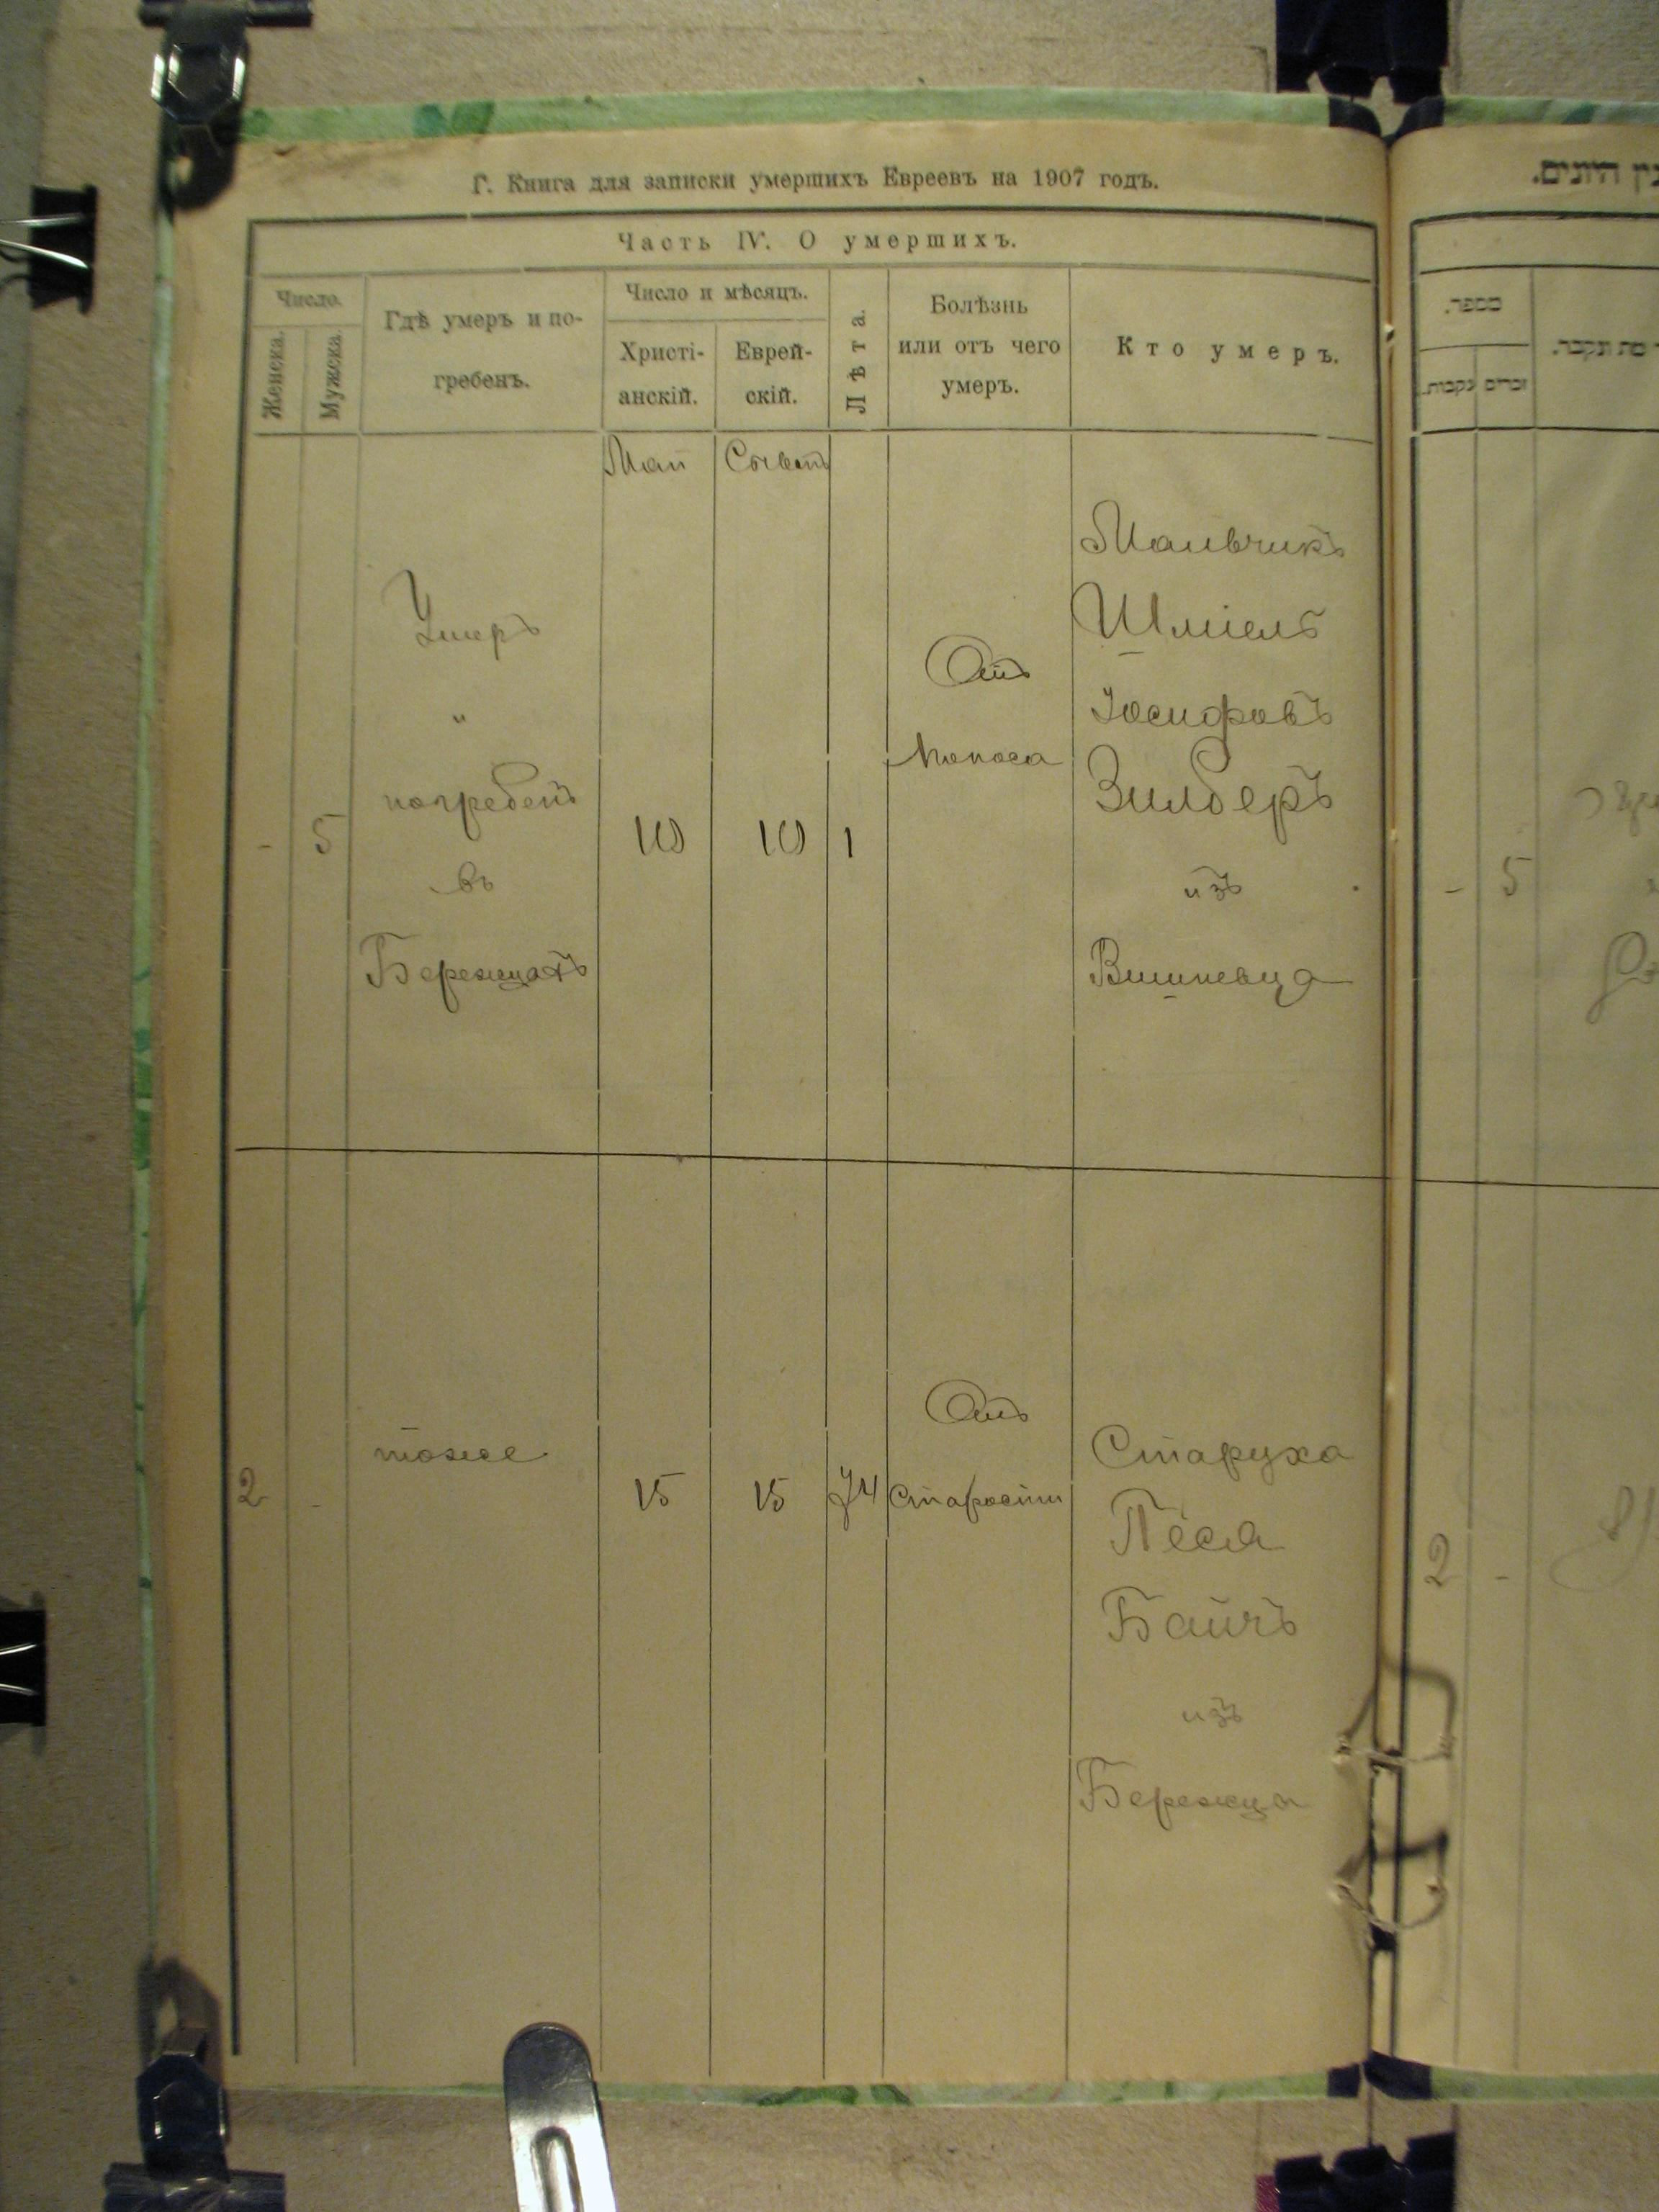 Г. Книга для записки умершихъ Евреевъ на 1907 годъ.
Часть IV. О умершихъ.
Число.
Женска.
Мужска.
Гдѣ умеръ и по-
гребенъ.
Число и мѣсяцъ.
Христі-
анскій.
Еврей-
скій.
Лѣта.
Болѣзнь
или отъ чего
умеръ.
Кто умеръ.
Май
-
5
Умеръ
"
погребенъ
въ
Бережцахъ
10
10
1
Отъ
поноса
Мальчикъ
Шміель
Іосифовъ
Зилберъ
изъ
Вишневца
2
-
тоже
15
15
74
Отъ
Старости
Старуха
Песя
Байчъ
изъ
Бережца
מספר.
זכרים
נקבות.
-
5
2
-